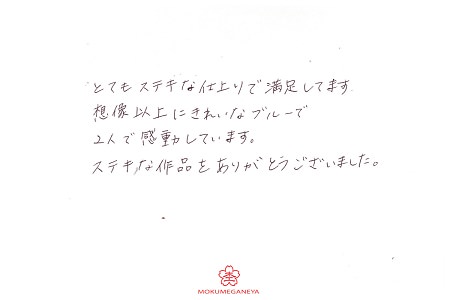 とてもステキな仕上りで満足してます
想像以上にきれいなブルーで
2人で感動しています。
ステキな作品をありがとうございました。
MOKUMEGANEYA